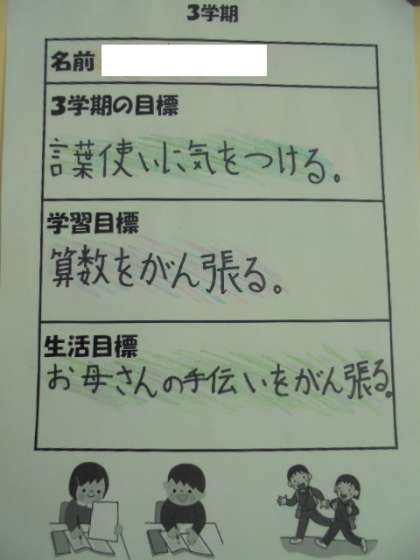 3学期
名前
3学期の目標
言葉使いに気をつける。
学習目標
算数をがん張る。
生活目標
お母さんの手伝いをがん張る。